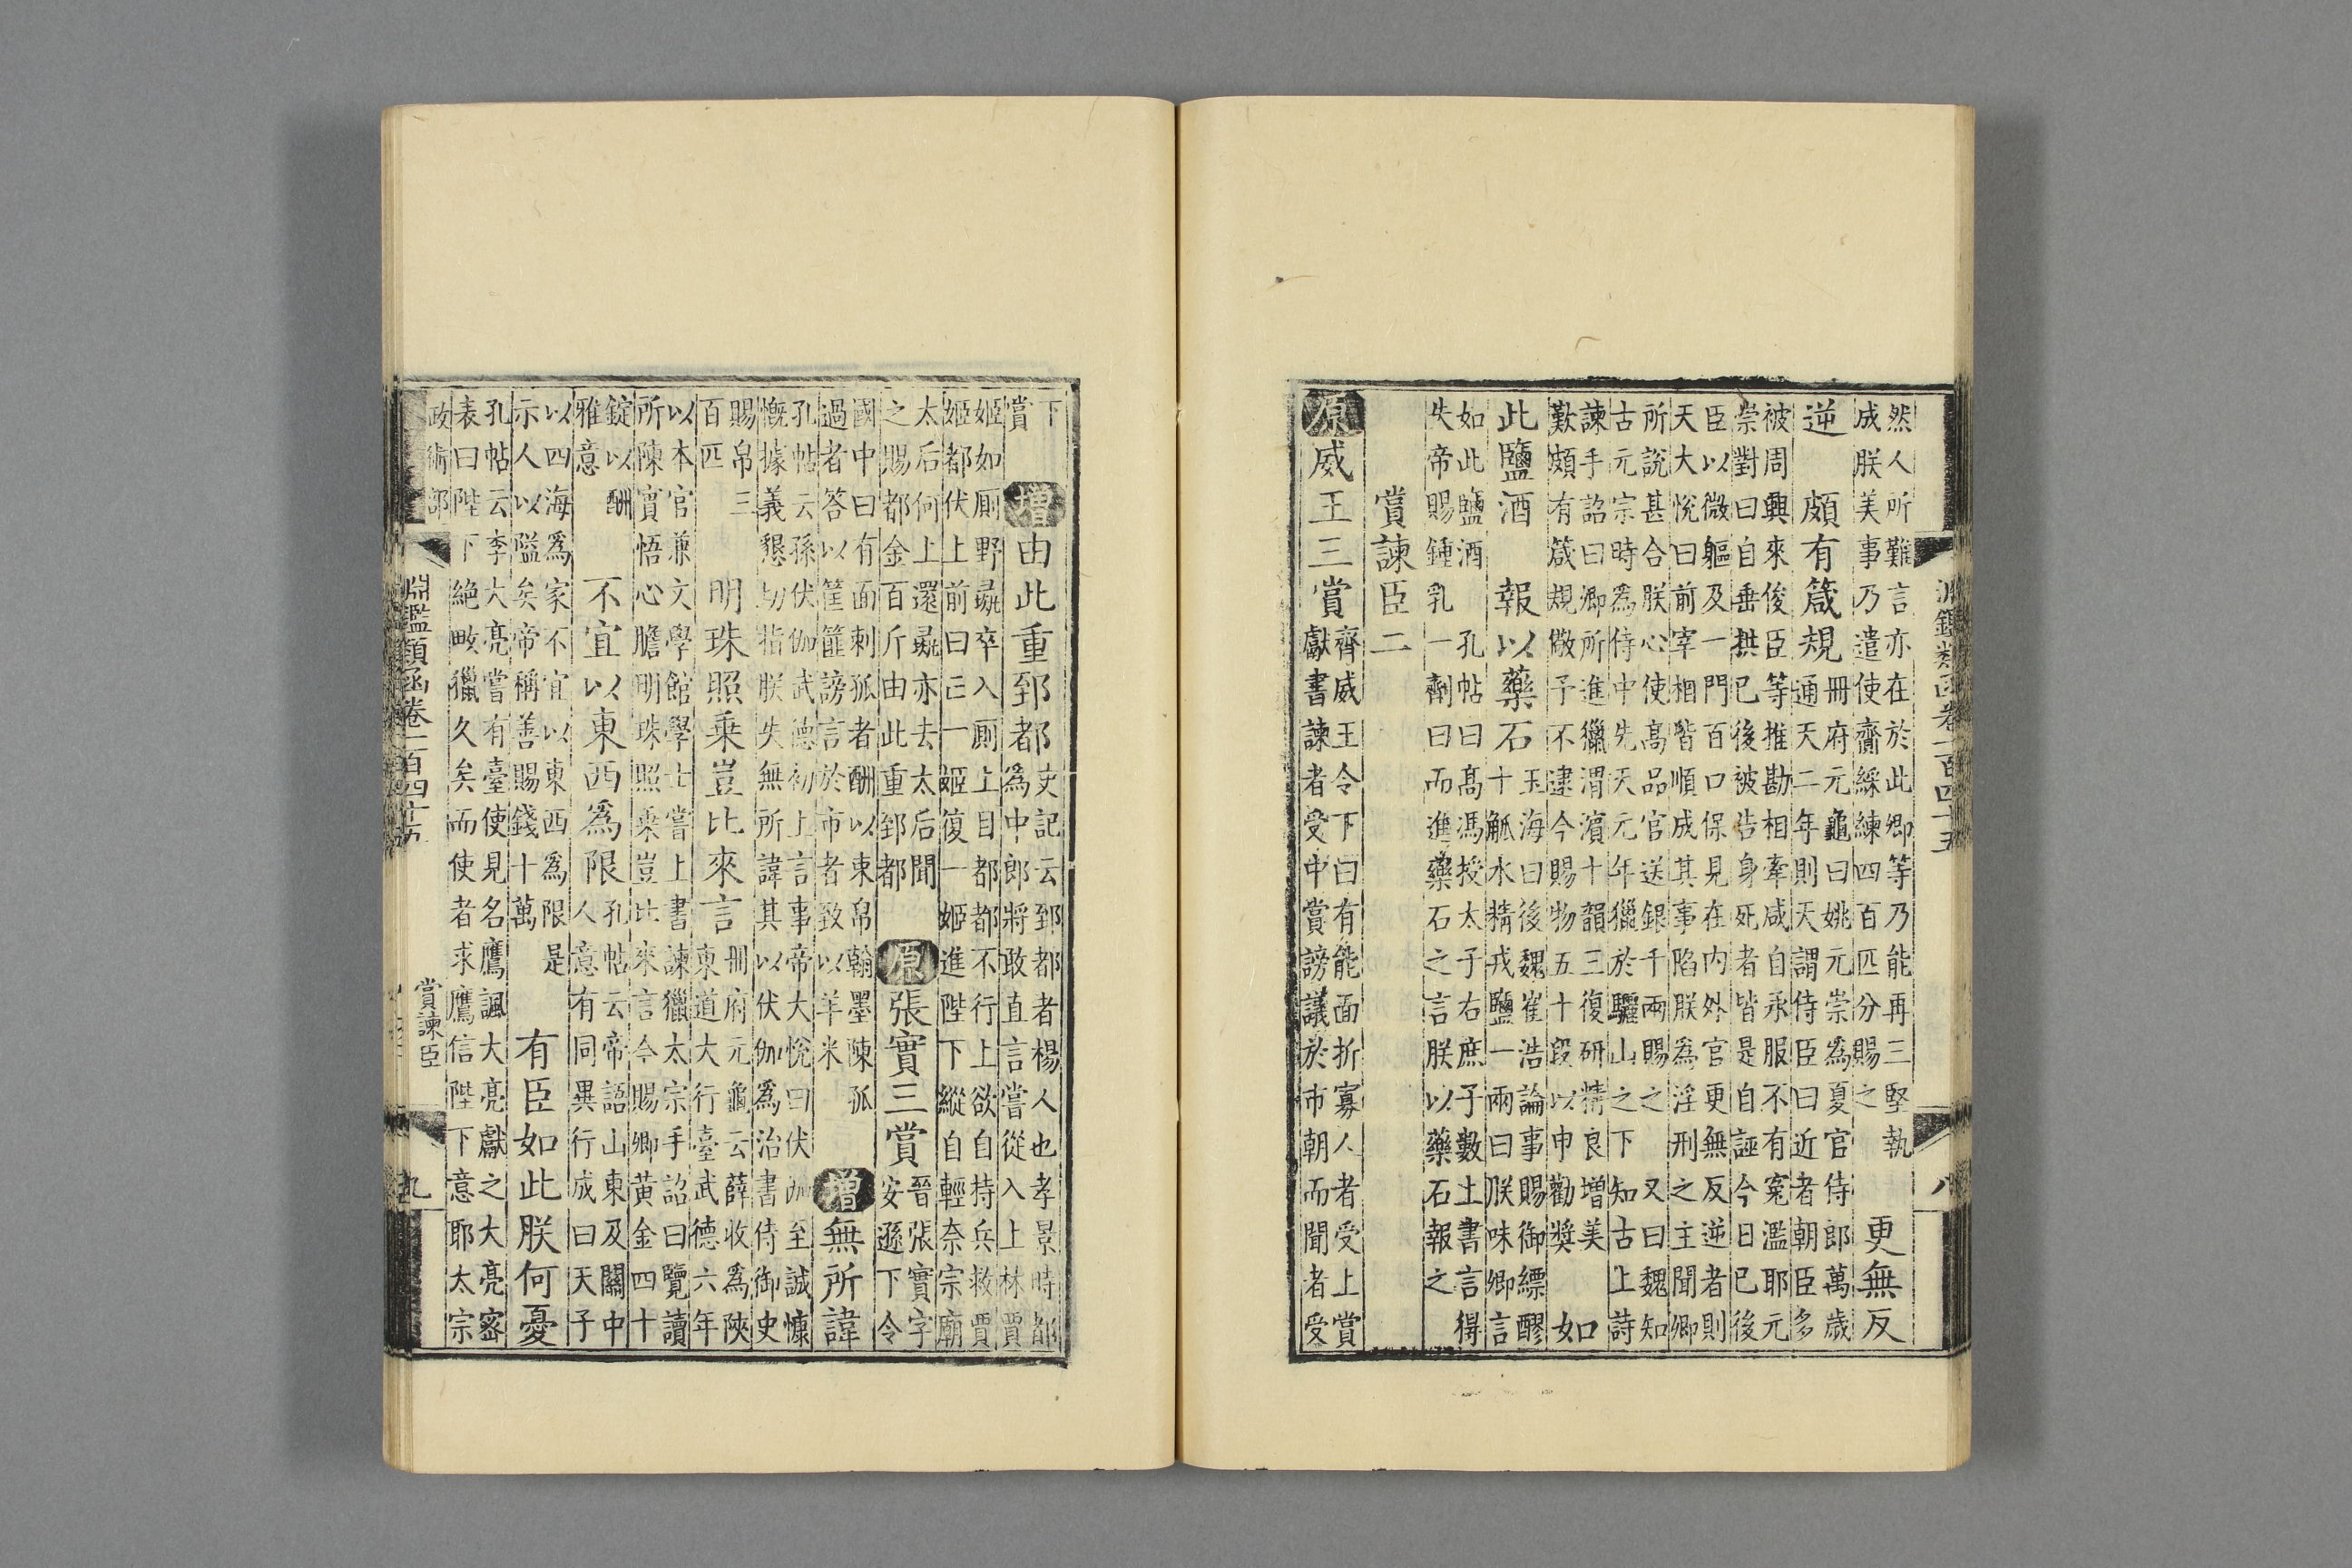 然人所難言亦在於此卿等乃能再三堅執
成朕美事乃遣使齎綵練四百匹分賜之
更無反
逆
頗有箴規
冊府元龜曰姚元崇為夏官侍郎萬歲
通天二年則天謂侍臣曰近者朝臣多
被周興來俊臣等推勘相牽咸自承服不有寃濫耶元
崇對曰自垂拱已後被告身死者皆是自誣今日已後
臣以微軀及一門百口保見在內外官更無反逆者則
天大悅曰前宰相皆順成其事陷朕為淫刑之主聞卿
所說甚合朕心使高品官送銀千兩賜之
又曰魏知
古元宗時為侍中先天元年獵於驪山之下知古上詩
諫手詔曰卿所進獵渭濱十韻三復研精良增美
歎頗有箴規敬予不逮今賜物五十段以申勸奬
如
此鹽酒
報以藥石
玉海曰後魏崔浩論事賜御縹醪
十觚水精戎鹽一兩曰朕味卿言
如此鹽酒
孔帖曰高馮授太子右庶子數上書言得
失帝賜鍾乳一劑曰而進藥石之言朕以藥石報之
賞諫臣二
原威王三賞
齊威王令下曰有能面折寡人者受上賞
獻書諫者受中賞謗議於市朝而聞者受
淵鑑類函卷一百四十五
八
下
賞
增由此重郅都
史記云郅都者楊人也孝景時都
為中郎將敢直言嘗從入上林賈
姬如厠野彘卒入厠上目都都不行上欲自持兵救賈
姬都伏上前曰亡一姬復一姬進陛下縱自輕奈宗廟
太后何上還彘亦去太后聞
之賜都金百斤由此重郅都
原張實三賞
晉張實字
安遜下令
國中曰有面刺孤者酬以東帛翰墨陳孤
過者答以筐篚謗言於市者致以羊米
增無所諱
孔帖云孫伏伽武德初上言事帝大悅曰伏伽至誠慷
慨據義懇切指朕失無所諱其以伏伽為治書侍御史
賜帛三
百匹
明珠照乘豈比來言
冊府元龜云薛收為陝
東道大行臺武德六年
以本官兼文學館學士嘗上書諫獵太宗手詔曰覽讀
所陳實悟心膽明珠照乘豈比來言今賜卿黃金四十
錠以酬
雅意
不宜以東西為限
孔帖云帝語山東及關中
人意有同異行成曰天子
以四海為家不宜以東西為限是
示人以隘矣帝稱善賜錢十萬
有臣如此朕何憂
孔帖云李大亮嘗有臺使見名鷹諷大亮獻之大亮密
表曰陛下絕畋獵久矣而使者求鷹信陛下意耶太宗
政術部
淵鑑類函卷一百四十五
賞諫臣
九